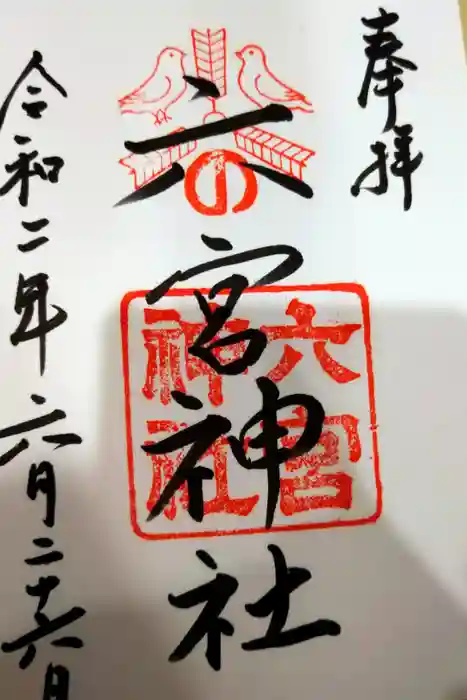 奉拝
六の宮神社
六宮
神社
令和二年六月二十六日